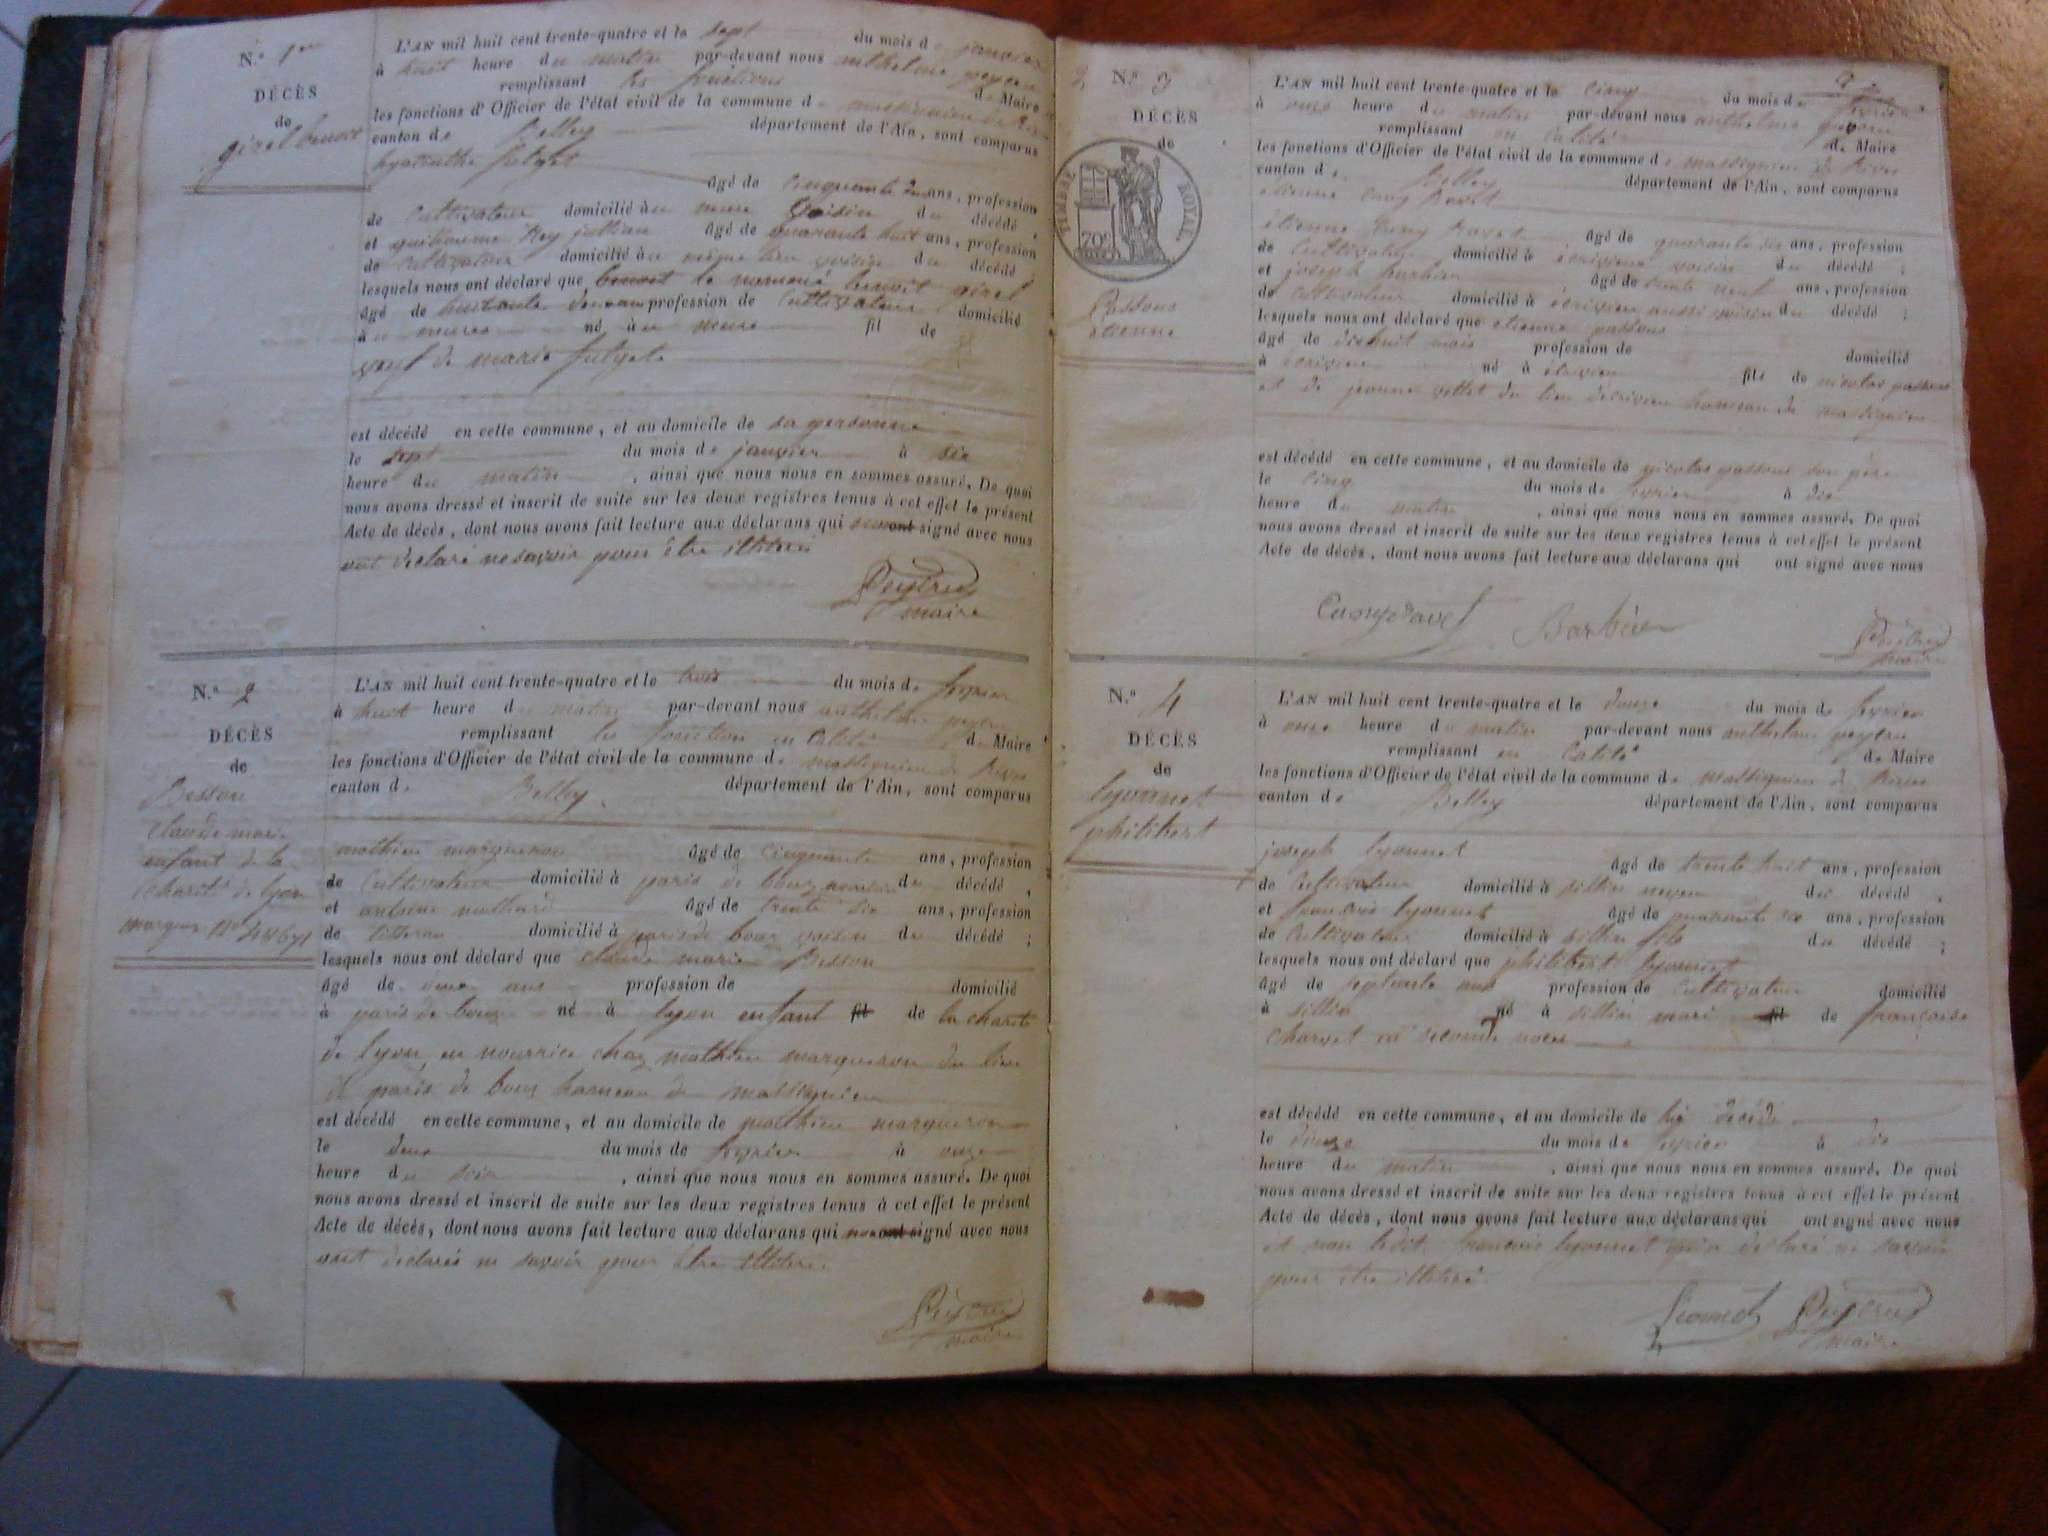 N.º 1er
DÉCÈS
de
girel benoit
L'AN mil huit cent trente-quatre et le sept du mois de janvier
à huit heure du matin par-devant nous anthelme peytru
remplissant les fonctions de Maire
les fonctions d'Officier de l'état civil de la commune de massignieu de Rives
canton de Belley département de l'Ain, sont comparus
hyacinthe
âgé de cinquante ans, profession
de cultivateur domicilié à voisin du décédé,
et guillaume Rey jullian âgé de quarante huit ans, profession
de cultivateur domicilié au même lieu voisin du décédé;
lesquels nous ont déclaré que benoit le nommé benoit girel
âgé de profession de cultivateur domicilié
à né à fil de
veuf de marie
est décédé en cette commune, et au domicile de sa personne
le sept du mois de janvier à six
heure du matin, ainsi que nous nous en sommes assuré. De quoi
nous avons dressé et inscrit de suite sur les deux registres tenus à cet effet le présent
Acte de décès, dont nous avons fait lecture aux déclarans qui ont signé avec nous
ont déclaré ne savoir pour être
Peytru
maire
N.º 2
DÉCÈS
de
Besson
claude marie
enfant de la
charité de lyon
L'AN mil huit cent trente-quatre et le trois du mois de fevrier
à huit heure du matin par-devant nous anthelme peytru
remplissant les fonction en calité de Maire
les fonctions d'Officier de l'état civil de la commune de massignieu de Rives
canton de Belley département de l'Ain, sont comparus
mathieu marqueron âgé de cinquante ans, profession
de cultivateur domicilié à paris de bouz du décédé,
et antoine âgé de trente six ans, profession
de domicilié à paris de bouz voisin du décédé;
lesquels nous ont déclaré que claude marie Besson
âgé de deux ans profession de domicilié
à paris de bouz né à lyon enfant fil de la charité
de lyon en nourrice chez mathieu marqueron du lieu
de paris de bouz hameau de massignieu
est décédé en cette commune, et au domicile de mathieu marqueron
le deux du mois de fevrier à onze
heure du soir, ainsi que nous nous en sommes assuré. De quoi
nous avons dressé et inscrit de suite sur les deux registres tenus à cet effet le présent
Acte de décès, dont nous avons fait lecture aux déclarans qui ont signé avec nous
ont declarés ne savoir pour être
Peytru
maire
N.º 3
DÉCÈS
de
TIMBRE ROYAL
70c
Passons
etienne
L'AN mil huit cent trente-quatre et le cinq du mois de fevrier
à onze heure du matin par-devant nous anthelme peytru
remplissant en calité de Maire
les fonctions d'Officier de l'état civil de la commune de massignieu de Rives
canton de Belley département de l'Ain, sont comparus
etienne
étienne âgé de quarante six ans, profession
de cultivateur domicilié à écrivieu voisin du décédé;
et joseph barbier âgé de trente neuf ans, profession
de cultivateur domicilié à écrivieu aussi voisin du décédé;
lesquels nous ont déclaré que etienne passons
âgé de dixhuit mois profession de domicilié
à écrivieu né à écrivieu fils de nicolas passons
et de jeanne du lieu décrivieu hameau de massignieu
est décédé en cette commune, et au domicile de nicolas passons son père
le cinq du mois de fevrier à dix
heure du matin, ainsi que nous nous en sommes assuré. De quoi
nous avons dressé et inscrit de suite sur les deux registres tenus à cet effet le présent
Acte de décès, dont nous avons fait lecture aux déclarans qui ont signé avec nous
Barbier
Peytru
maire
N.º 4
DÉCÈS
de
lyonnet
philibert
L'AN mil huit cent trente-quatre et le douze du mois de fevrier
à onze heure du matin par-devant nous anthelme peytru
remplissant en calité de Maire
les fonctions d'Officier de l'état civil de la commune de massignieu de Rives
canton de Belley département de l'Ain, sont comparus
joseph lyonnet âgé de trente huit ans, profession
de cultivateur domicilié à sillin neveu du décédé,
et françois lyonnet âgé de quarante six ans, profession
de cultivateur domicilié à sillin fils du décédé;
lesquels nous ont déclaré que philibert lyonnet
âgé de septante ans profession de cultivateur domicilié
à sillin né à sillin mari fil de françoise
charvet en seconde noces
est décédé en cette commune, et au domicile de décédé
le douze du mois de fevrier à dix
heure du matin, ainsi que nous nous en sommes assuré. De quoi
nous avons dressé et inscrit de suite sur les deux registres tenus à cet effet le présent
Acte de décès, dont nous avons fait lecture aux déclarans qui ont signé avec nous
et non ledit françois lyonnet qui a declaré ne savoir
pour être
Peytru
maire